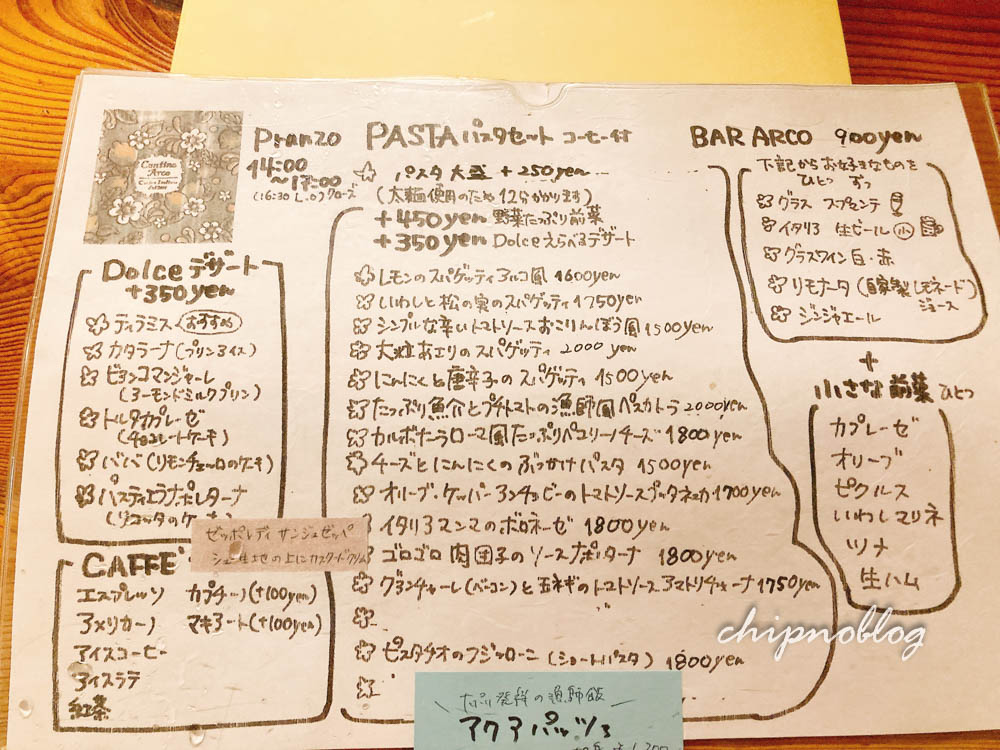 Cantina
Arco
Pranzo
14:00
～17:00
(16:30 L.O) クローズ
Dolce デザート
+350yen
ティラミス おすすめ
カタラーナ(プリンアイス)
ビアンコマンジャーレ
(アーモンドミルクプリン)
トルタカプレーゼ
(チョコレートケーキ)
ババ(リモンチェッロのケーキ)
パスティエラナポレターナ
(リコッタのケーキ)
ゼッポレディ サンジュゼッペ
シュー生地の上にカスタードクリーム
CAFFE'
エスプレッソ カプチーノ(+100yen)
アメリカーノ マキアート(+100yen)
アイスコーヒー
アイスラテ
紅茶
PASTA パスタセット コーヒー付
パスタ 大盛 +250yen
(太麺使用のため 12分かかります)
+450yen 野菜たっぷり前菜
+350yen Dolce えらべるデザート
レモンのスパゲッティ アルコ風 1600yen
いわしと松の実のスパゲッティ 1750yen
シンプルな辛いトマトソース おこりんぼう風 1500yen
大粒あさりのスパゲッティ 2000yen
にんにくと唐辛子のスパゲッティ 1500yen
たっぷり魚介とプチトマトの漁師風 ペスカトラ 2000yen
カルボナーラ ローマ風 たっぷりペコリーノチーズ 1800yen
チーズとにんにくのぶっかけパスタ 1500yen
オリーブ・ケッパー・アンチョビーのトマトソース プッタネスカ 1700yen
イタリアマンマのボロネーゼ 1800yen
ゴロゴロ肉団子のソース ナポリターナ 1800yen
グアンチャーレ(ベーコン)と玉ネギのトマトソース アマトリチャーナ 1750yen
ピスタチオのフジッローニ (ショートパスタ) 1800yen
漁師飯
アクアパッツァ
BAR ARCO 900yen
下記からお好きなものを
ひとつ ずつ
グラス スプマンテ
イタリア 生ビール 小
グラスワイン 白・赤
リモナータ (自家製レモネード)
ジュース
ジンジャエール
+
小さな前菜 ひとつ
カプレーゼ
オリーブ
ピクルス
いわしマリネ
ツナ
生ハム
chipnoblog